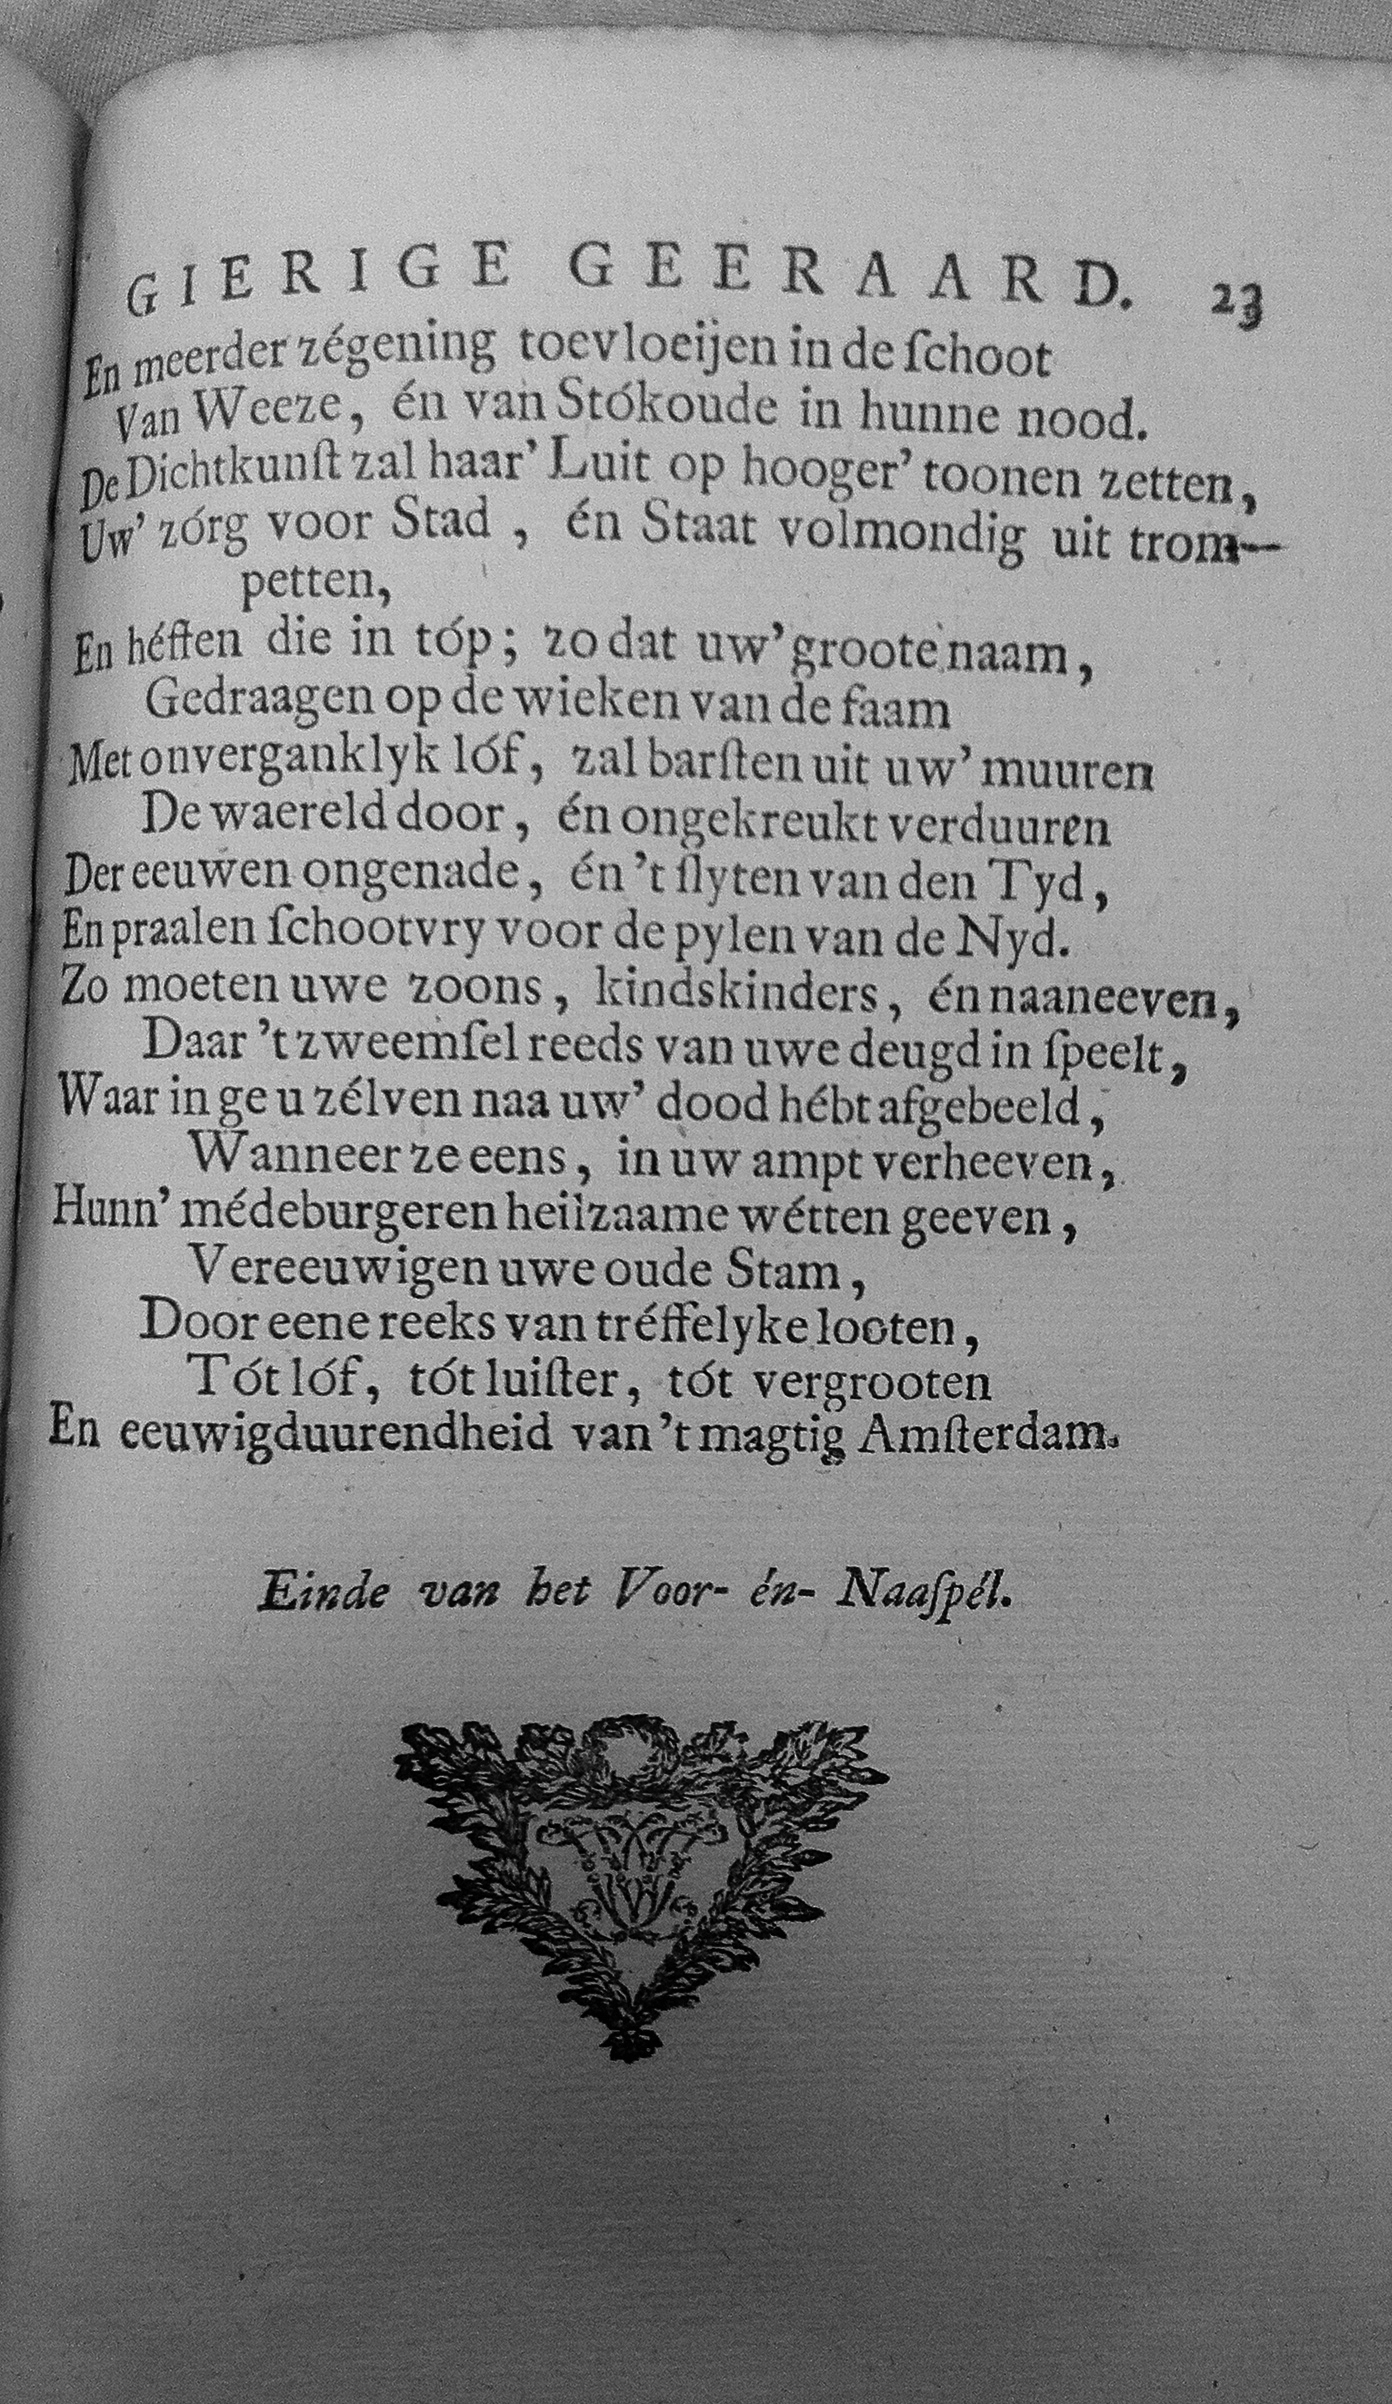 GIERIGE GEERAARD. 23
En meerder zégening toevloeijen in de ſchoot
Van Weeze, én van Stókoude in hunne nood.
De Dichtkunſt zal haar' Luit op hooger' toonen zetten,
Uw' zórg voor Stad , én Staat volmondig uit trom-
petten,
En héffen die in tóp; zo dat uw' groote naam,
Gedraagen op de wieken van de faam
Met onverganklyk lóf, zal barſten uit uw' muuren
De waereld door, én ongekreukt verduuren
Der eeuwen ongenade, én 't ſlyten van den Tyd,
En praalen ſchootvry voor de pylen van de Nyd.
Zo moeten uwe zoons, kindskinders, én naaneeven,
Daar 't zweemſel reeds van uwe deugd in ſpeelt,
Waar in ge u zélven naa uw' dood hébt afgebeeld,
Wanneer ze eens, in uw ampt verheeven,
Hunn' médeburgeren heilzaame wétten geeven,
Vereeuwigen uwe oude Stam,
Door eene reeks van tréffelyke looten,
Tót lóf, tót luiſter, tót vergrooten
En eeuwigduurendheid van 't magtig Amſterdam.
Einde van het Voor- én- Naaſpél.